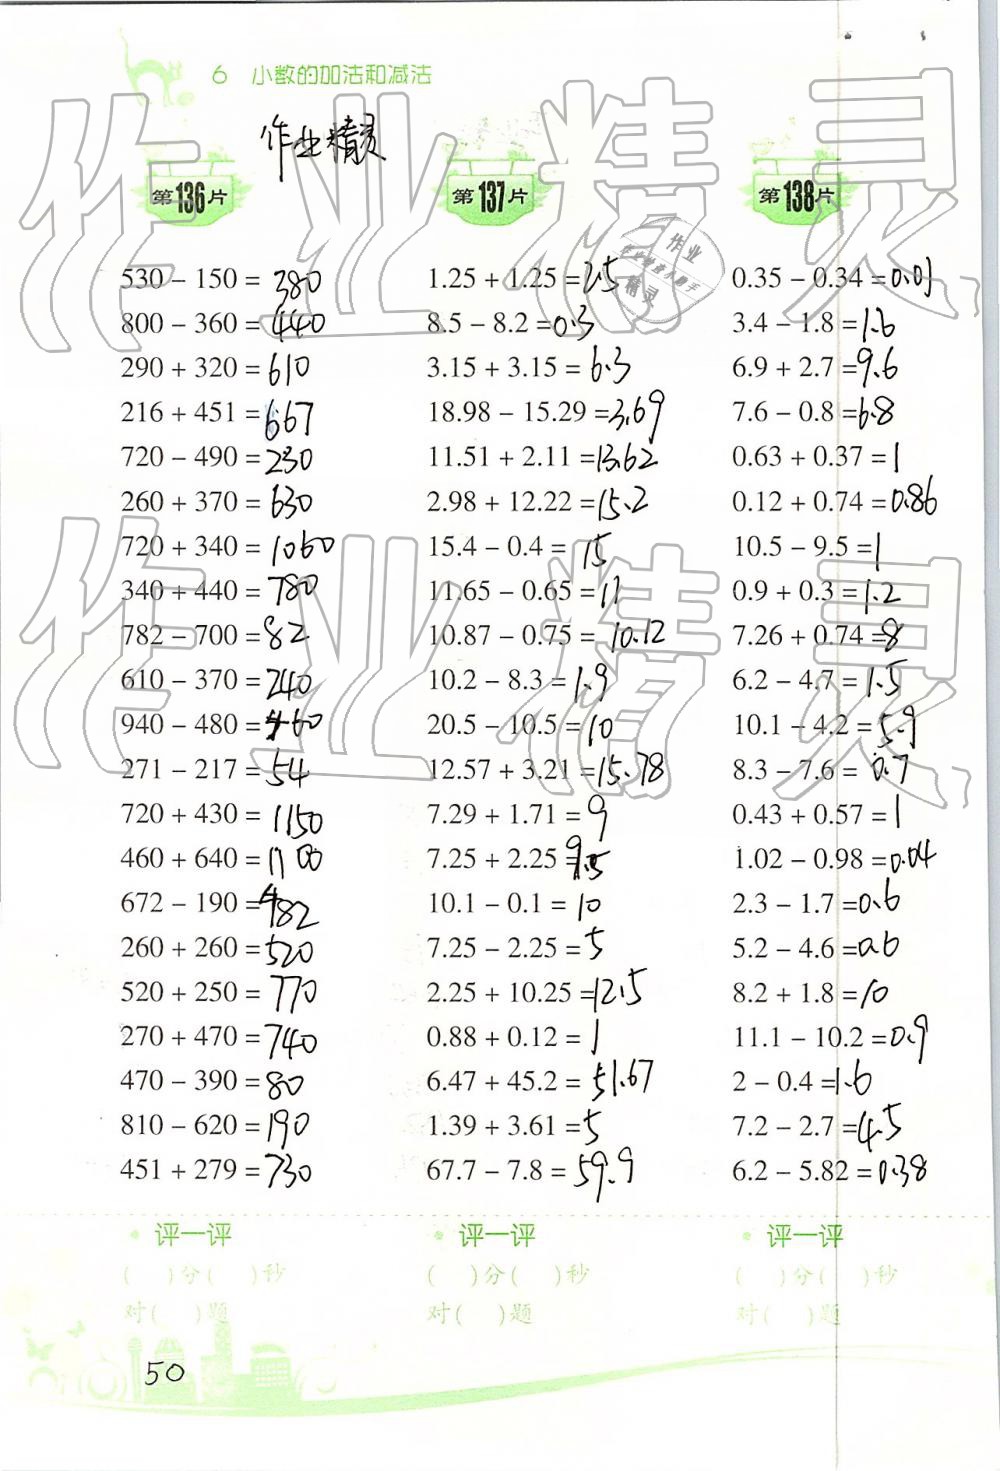 6 小数的加法和减法
作业精灵
第136片
530 − 150 = 380
800 − 360 = 440
290 + 320 = 610
216 + 451 = 667
720 − 490 = 230
260 + 370 = 630
720 + 340 = 1060
340 + 440 = 780
782 − 700 = 82
610 − 370 = 240
940 − 480 = 460
271 − 217 = 54
720 + 430 = 1150
460 + 640 = 1100
672 − 190 = 482
260 + 260 = 520
520 + 250 = 770
270 + 470 = 740
470 − 390 = 80
810 − 620 = 190
451 + 279 = 730
评一评
( )分( )秒
对( )题
第137片
1.25 + 1.25 = 2.5
8.5 − 8.2 = 0.3
3.15 + 3.15 = 6.3
18.98 − 15.29 = 3.69
11.51 + 2.11 = 13.62
2.98 + 12.22 = 15.2
15.4 − 0.4 = 15
11.65 − 0.65 = 11
10.87 − 0.75 = 10.12
10.2 − 8.3 = 1.9
20.5 − 10.5 = 10
12.57 + 3.21 = 15.78
7.29 + 1.71 = 9
7.25 + 2.25 = 9.5
10.1 − 0.1 = 10
7.25 − 2.25 = 5
2.25 + 10.25 = 12.5
0.88 + 0.12 = 1
6.47 + 45.2 = 51.67
1.39 + 3.61 = 5
67.7 − 7.8 = 59.9
评一评
( )分( )秒
对( )题
第138片
0.35 − 0.34 = 0.01
3.4 − 1.8 = 1.6
6.9 + 2.7 = 9.6
7.6 − 0.8 = 6.8
0.63 + 0.37 = 1
0.12 + 0.74 = 0.86
10.5 − 9.5 = 1
0.9 + 0.3 = 1.2
7.26 + 0.74 = 8
6.2 − 4.7 = 1.5
10.1 − 4.2 = 5.9
8.3 − 7.6 = 0.7
0.43 + 0.57 = 1
1.02 − 0.98 = 0.04
2.3 − 1.7 = 0.6
5.2 − 4.6 = 0.6
8.2 + 1.8 = 10
11.1 − 10.2 = 0.9
2 − 0.4 = 1.6
7.2 − 2.7 = 4.5
6.2 − 5.82 = 0.38
评一评
( )分( )秒
对( )题
50
作业精灵
作业精灵
作业
精灵